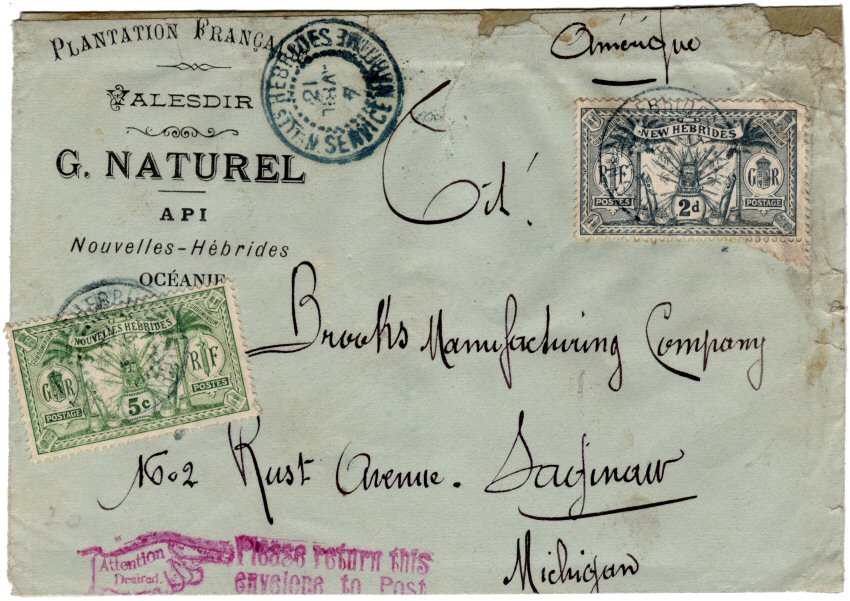 PLANTATION FRANÇA
VALESDIR
G. NATUREL
API
Nouvelles-Hébrides
OCÉANIE
HEBRIDES
MARITIME SERVICE
21
AVRIL
4
Amérique
NEW HEBRIDES
RF
GR
POSTES
2d
POSTAGE
Cié!
NOUVELLES HÉBRIDES
GR
RF
POSTAGE
5c
POSTES
Brooks Manufacturing Company
No 2 Rust Avenue. Saginaw
Michigan
20
Attention
Desired.
Please return this
envelope to Post